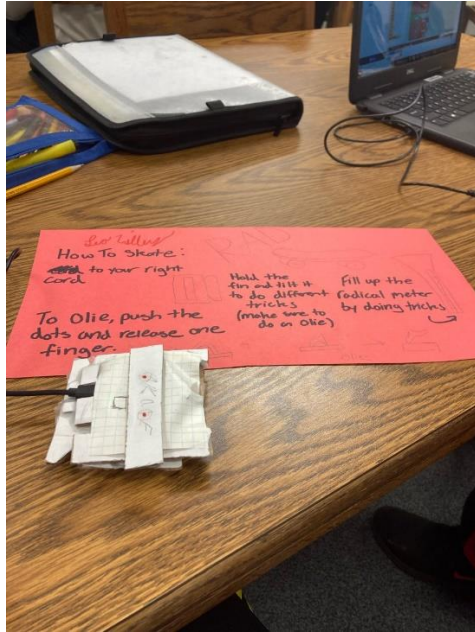 How To Skate:
to your right
card
To Olie, push the
dots and release one
finger.
Hold the
fin and tilt it
to do different
tricks
(make sure to
do an Olie)
Fill up the
radical meter
by doing tricks
DELL